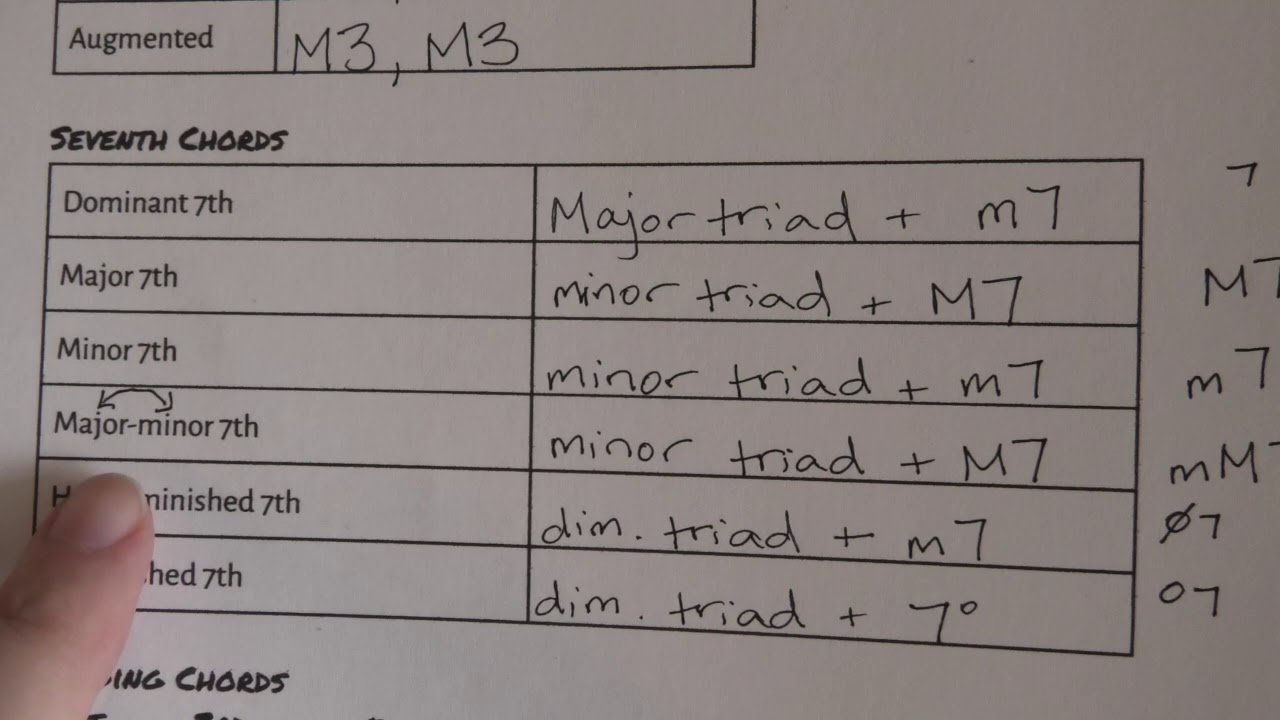 Augmented M3, M3
SEVENTH CHORDS
Dominant 7th Major triad + m7 7
Major 7th minor triad + M7 M7
Minor 7th minor triad + m7 m7
Major-minor 7th minor triad + M7 mM7
7th dim. triad + m7 ø7
7th dim. triad + 7° o7
CHORDS